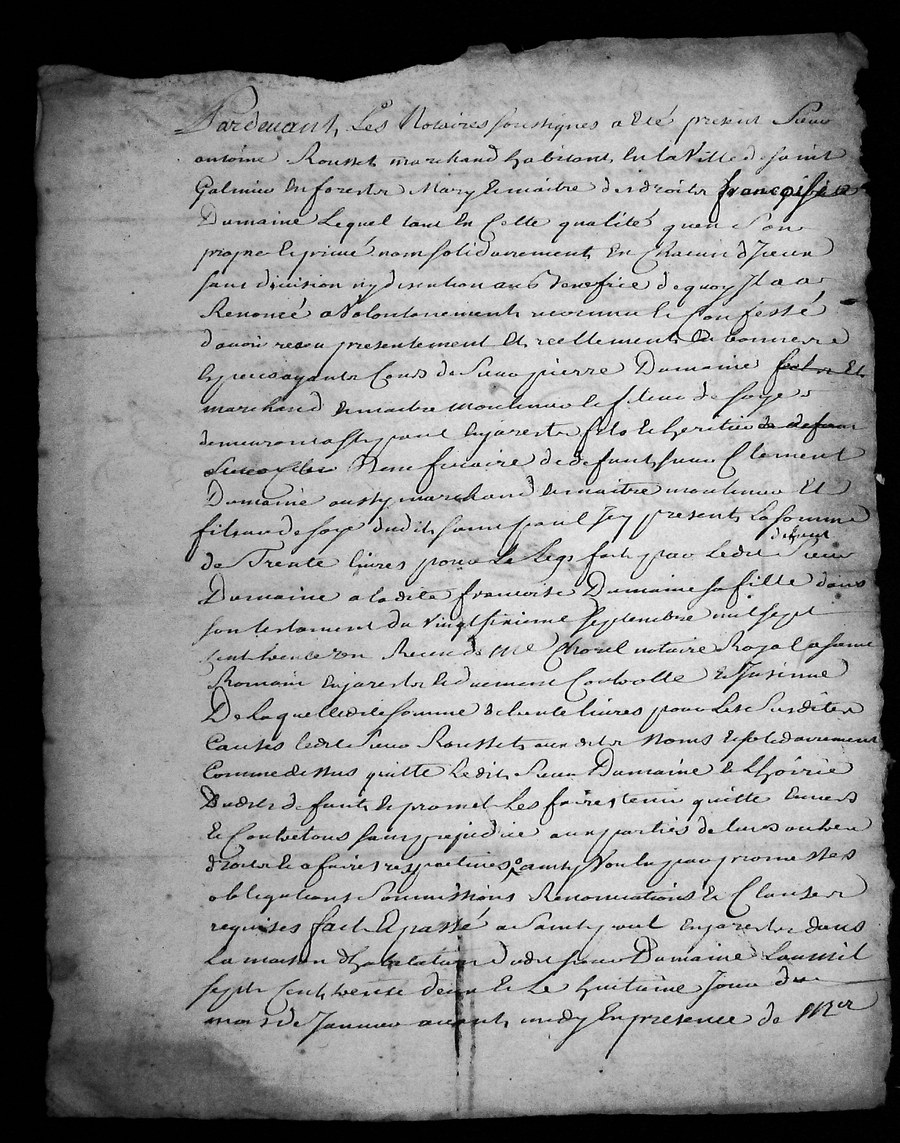 Pardevant Les Notaires soussignes a été present Sieur
antoine Rousset marchand habitant En la Ville de saint
Galmier En forest Mary Et maitre des droits françoise
Domaine Lequel tant En Cette qualité quen Son
propre Et privé nom solidairement En Chacun d'Iceux
sans division ny discution au benefice de quoy Il a
Renoncé a Volontairement reconnu Et Confessé
davoir receu presentement Et reellement En bonnes
Especes ayants Cours de Sieur pierre Domaine
marchand Et maitre moulinier Et fileur de soye
demeurant a St paul En jarest fils Et heritier
Beneficiaire de defunt sieur Clement
Domaine aussy marchand Et maitre moulinier Et
fileur de soye dudit saint paul Icy present La somme
de Trente livres pour Le Legs fait par Ledit defunt Sieur
Domaine a ladite francoise Domaine sa fille dans
son testament du vingt sixieme Septembre mil sept
cent trente un Receu de Me Chorel notaire Royal a saint
Romain En jarest Et duement Controlle Et Insinué
De laquelle dite somme de trente livres pour Les Susdites
Causes ledit Sieur Rousset aux dits Noms Et solidairement
Comme dessus quitte Ledit Sieur Domaine Et Lhoirie
Dudit defunt Et promet Les faire tenir quitte Envers
Et Contre tous sans prejudice aux parties de leurs autres
droits Et afaires respectives Car ainsy Voulu par promesses
obligations Soumissions Renonciations Et Clauses
requises fait Et passé a Saint paul En jarest dans
La maison d'habitation dudit sieur Domaine Lan mil
sept Cent trente deux Et Le huitieme Jour du
mois de Janvier avant midy En presence de